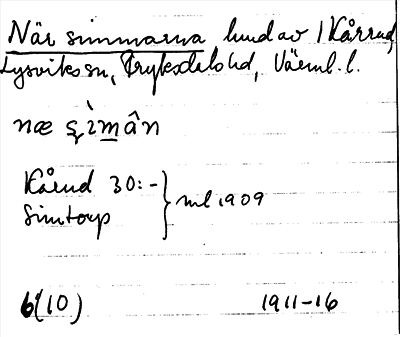 När simmarna hmd av / Kårrud,
Lysviks sn, Fryksdals hd, Värml. l.
næ s̨ìmân
Kårud 30:- } ml 1909
Simtorp
6(10) 1911-16